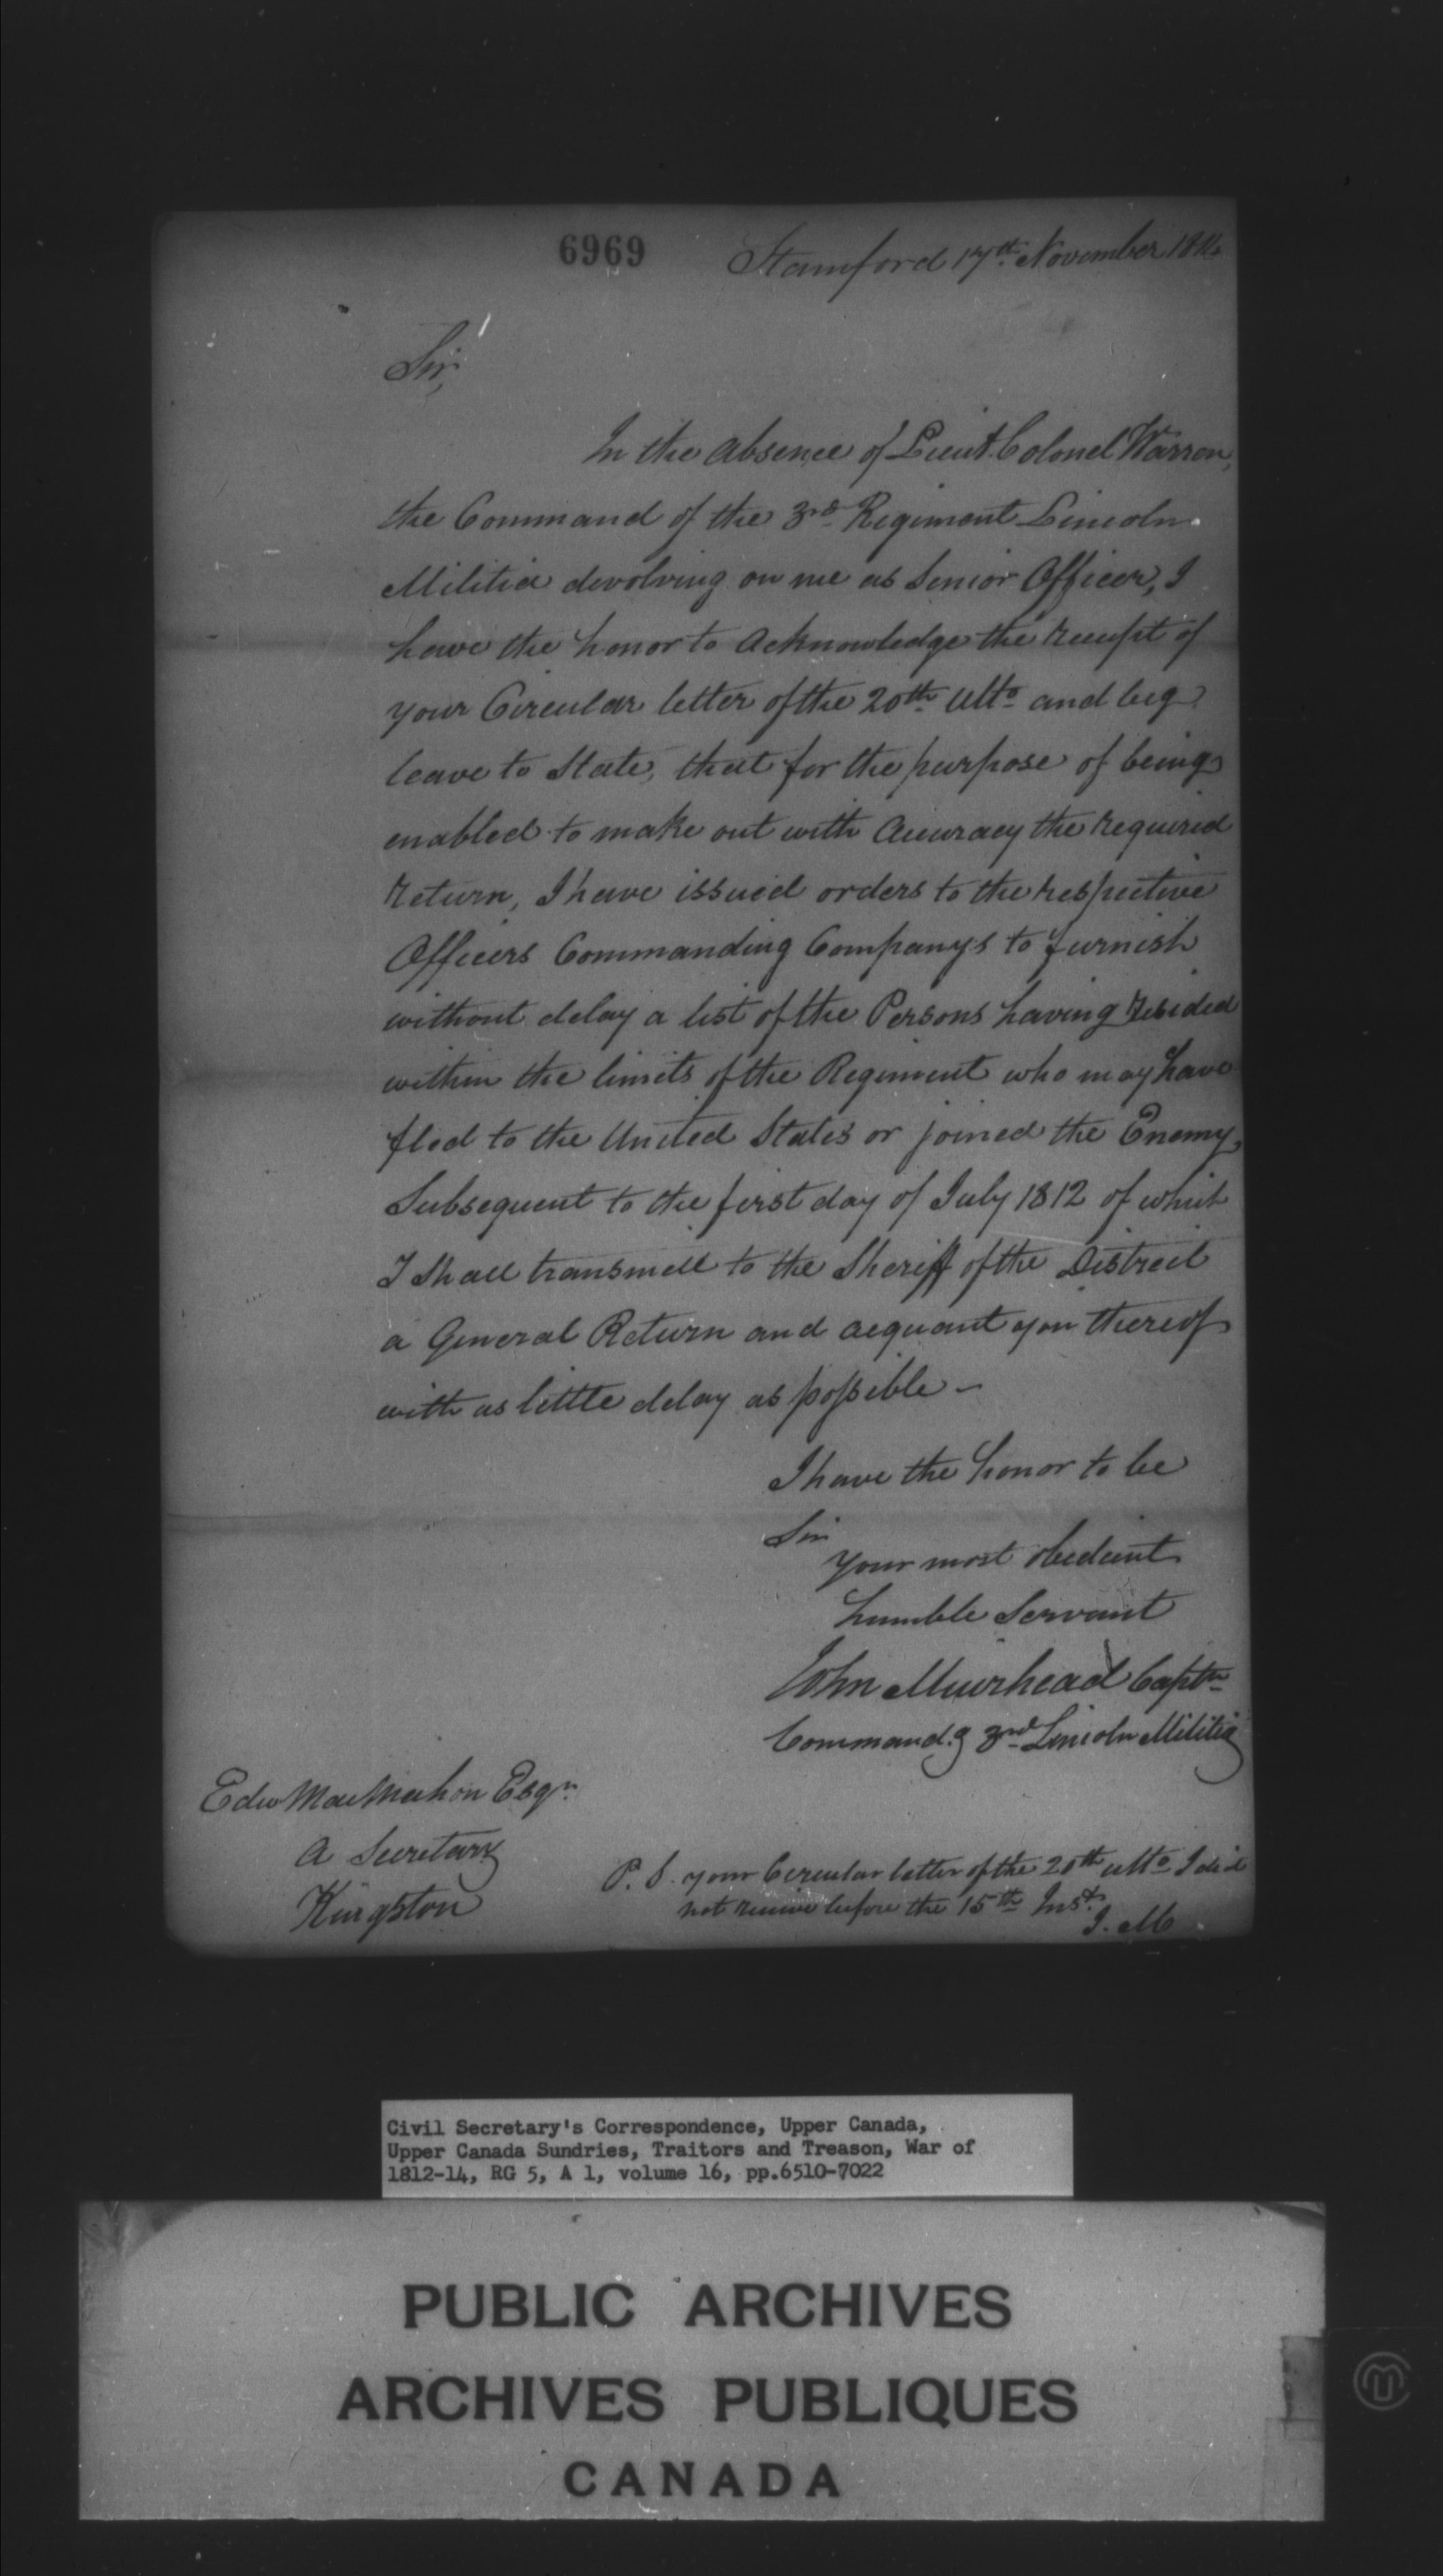 6969
Stamford 17th November 1814
Sir,
In the absence of Lieut. Colonel Warren,
the Command of the 3rd Regiment Lincoln
Militia devolving on me as Senior Officer, I
have the honor to acknowledge the receipt of
your Circular letter of the 20th Ulto and beg
leave to State, that for the purpose of being
enabled to make out with accuracy the required
return, I have issued orders to the respective
Officers Commanding Companys to furnish
without delay a list of the Persons having resided
within the limits of the Regiment who may have
fled to the United States or joined the Enemy,
Subsequent to the first day of July 1812 of which
I Shall transmitt to the Sheriff of the District
a General Return and acquant you thereof
with as little delay as possible –
I have the honor to be
Sir
your most obedient
humble Servant
John Muirhead Captn
Command.g 3rd Lincoln Militia
Edw MacMahon Esqr.
A Secretary
Kingston
P. S. your Circular letter of the 20th ulto I did
not receive before the 15th Inst.
J. M
Civil Secretary's Correspondence, Upper Canada,
Upper Canada Sundries, Traitors and Treason, War of
1812-14, RG 5, A 1, volume 16, pp.6510-7022
PUBLIC ARCHIVES
ARCHIVES PUBLIQUES
CANADA